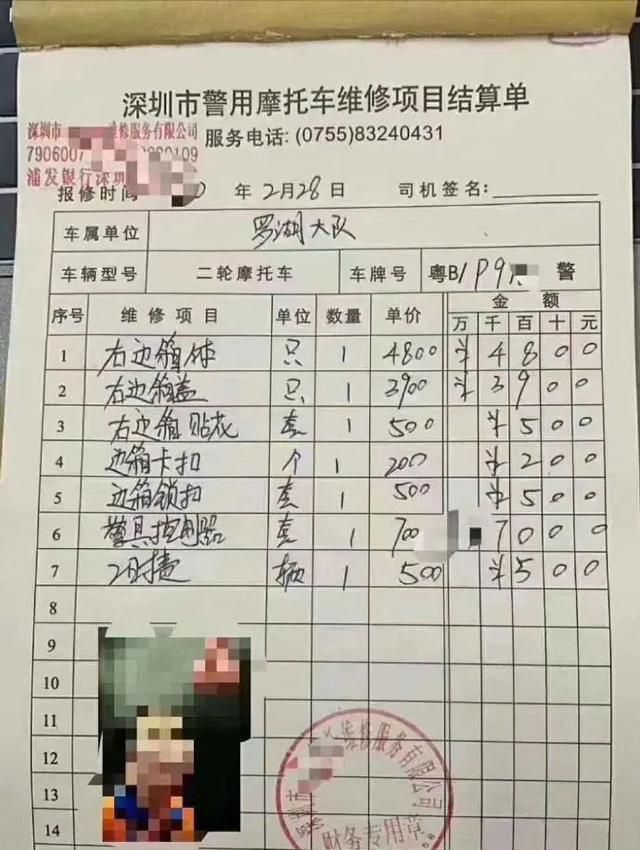 深圳市警用摩托车维修项目结算单
深圳市 维修服务有限公司
服务电话: (0755)83240431
7906007 109
浦发银行深圳
报修时间 0 年 2月28日 司机签名:
车属单位 罗湖大队
车辆型号 二轮摩托车 车牌号 粤B/P9 警
序号 维修项目 单位 数量 单价 金额
万 千 百 十 元
1 右边箱体 只 1 4800 ¥ 4 8 0 0
2 右边箱盖 只 1 3900 ¥ 3 9 0 0
3 右边箱贴花 套 1 500 ¥ 5 0 0
4 边箱卡扣 个 1 200 ¥ 2 0 0
5 边箱锁扣 套 1 500 ¥ 5 0 0
6 警具控制器 套 1 700 7 0 0
7 工时费 辆 1 500 ¥ 5 0 0
8
9
10
11
12
13
14
深圳市 维修服务有限公司
财务专用章